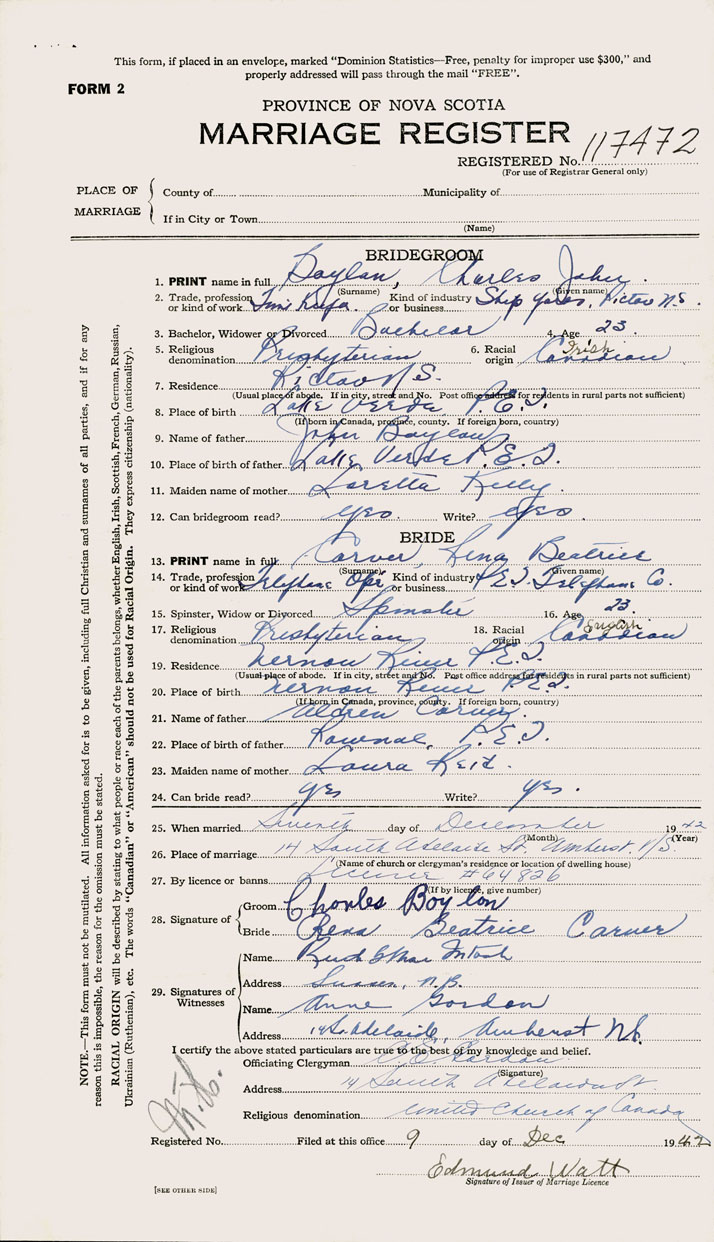 This form, if placed in an envelope, marked "Dominion Statistics—Free, penalty for improper use $300," and
properly addressed will pass through the mail "FREE".
FORM 2
PROVINCE OF NOVA SCOTIA
MARRIAGE REGISTER
REGISTERED No. 117472
(For use of Registrar General only)
PLACE OF MARRIAGE
County of Municipality of
If in City or Town
(Name)
BRIDEGROOM
1. PRINT name in full Boylan, Charles John
(Surname) (Given name)
2. Trade, profession or kind of work Time Keeper Kind of industry or business Ship Yards, Pictou N.S.
3. Bachelor, Widower or Divorced Bachelor 4. Age 23
5. Religious denomination Presbyterian 6. Racial origin Irish Canadian
7. Residence Pictou N.S.
(Usual place of abode. If in city, street and No. Post office address for residents in rural parts not sufficient)
8. Place of birth Lake Verde, P.E.I.
(If born in Canada, province, county. If foreign born, country)
9. Name of father John Boylan
10. Place of birth of father Lake Verde P.E.I.
11. Maiden name of mother Loretta Kelly
12. Can bridegroom read? yes. Write? yes.
BRIDE
13. PRINT name in full Carver, Rena Beatrice
(Surname) (Given name)
14. Trade, profession or kind of work Telephone Oper Kind of industry or business P.E.I. Telephone Co.
15. Spinster, Widow or Divorced Spinster 16. Age 23
17. Religious denomination Presbyterian 18. Racial origin Canadian
19. Residence Vernon River P.E.I.
(Usual place of abode. If in city, street and No. Post office address for residents in rural parts not sufficient)
20. Place of birth Vernon River P.E.I.
(If born in Canada, province, county. If foreign born, country)
21. Name of father Carver
22. Place of birth of father Pownal, P.E.I.
23. Maiden name of mother Laura Reid.
24. Can bride read? yes Write? yes.
25. When married Seventh day of December 1942
(Month) (Year)
26. Place of marriage 14 South Adelaide St. Amherst. N.S.
(Name of church or clergyman's residence or location of dwelling house)
27. By licence or banns License #64826
(If by licence, give number)
28. Signature of Groom Charles Boylan
Bride Rena Beatrice Carver
29. Signatures of Witnesses
Name Ruth MacIntosh
Address Sussex, N.B.
Name Anne Gordon
Address 14 So. Adelaide, Amherst N.S.
I certify the above stated particulars are true to the best of my knowledge and belief.
Officiating Clergyman Gordon
(Signature)
Address 14 South Adelaide St.
Religious denomination United Church of Canada
Registered No. Filed at this office 9 day of Dec 1942
Edmund Watt
Signature of Issuer of Marriage Licence
[SEE OTHER SIDE]
NOTE.—This form must not be mutilated. All information asked for is to be given, including full Christian and surnames of all parties, and if for any
reason this is impossible, the reason for the omission must be stated.
RACIAL ORIGIN will be described by stating to what people or race each of the parents belongs, whether English, Irish, Scottish, French, German, Russian,
Ukrainian (Ruthenian), etc. The words "Canadian" or "American" should not be used for Racial Origin. They express citizenship (nationality).